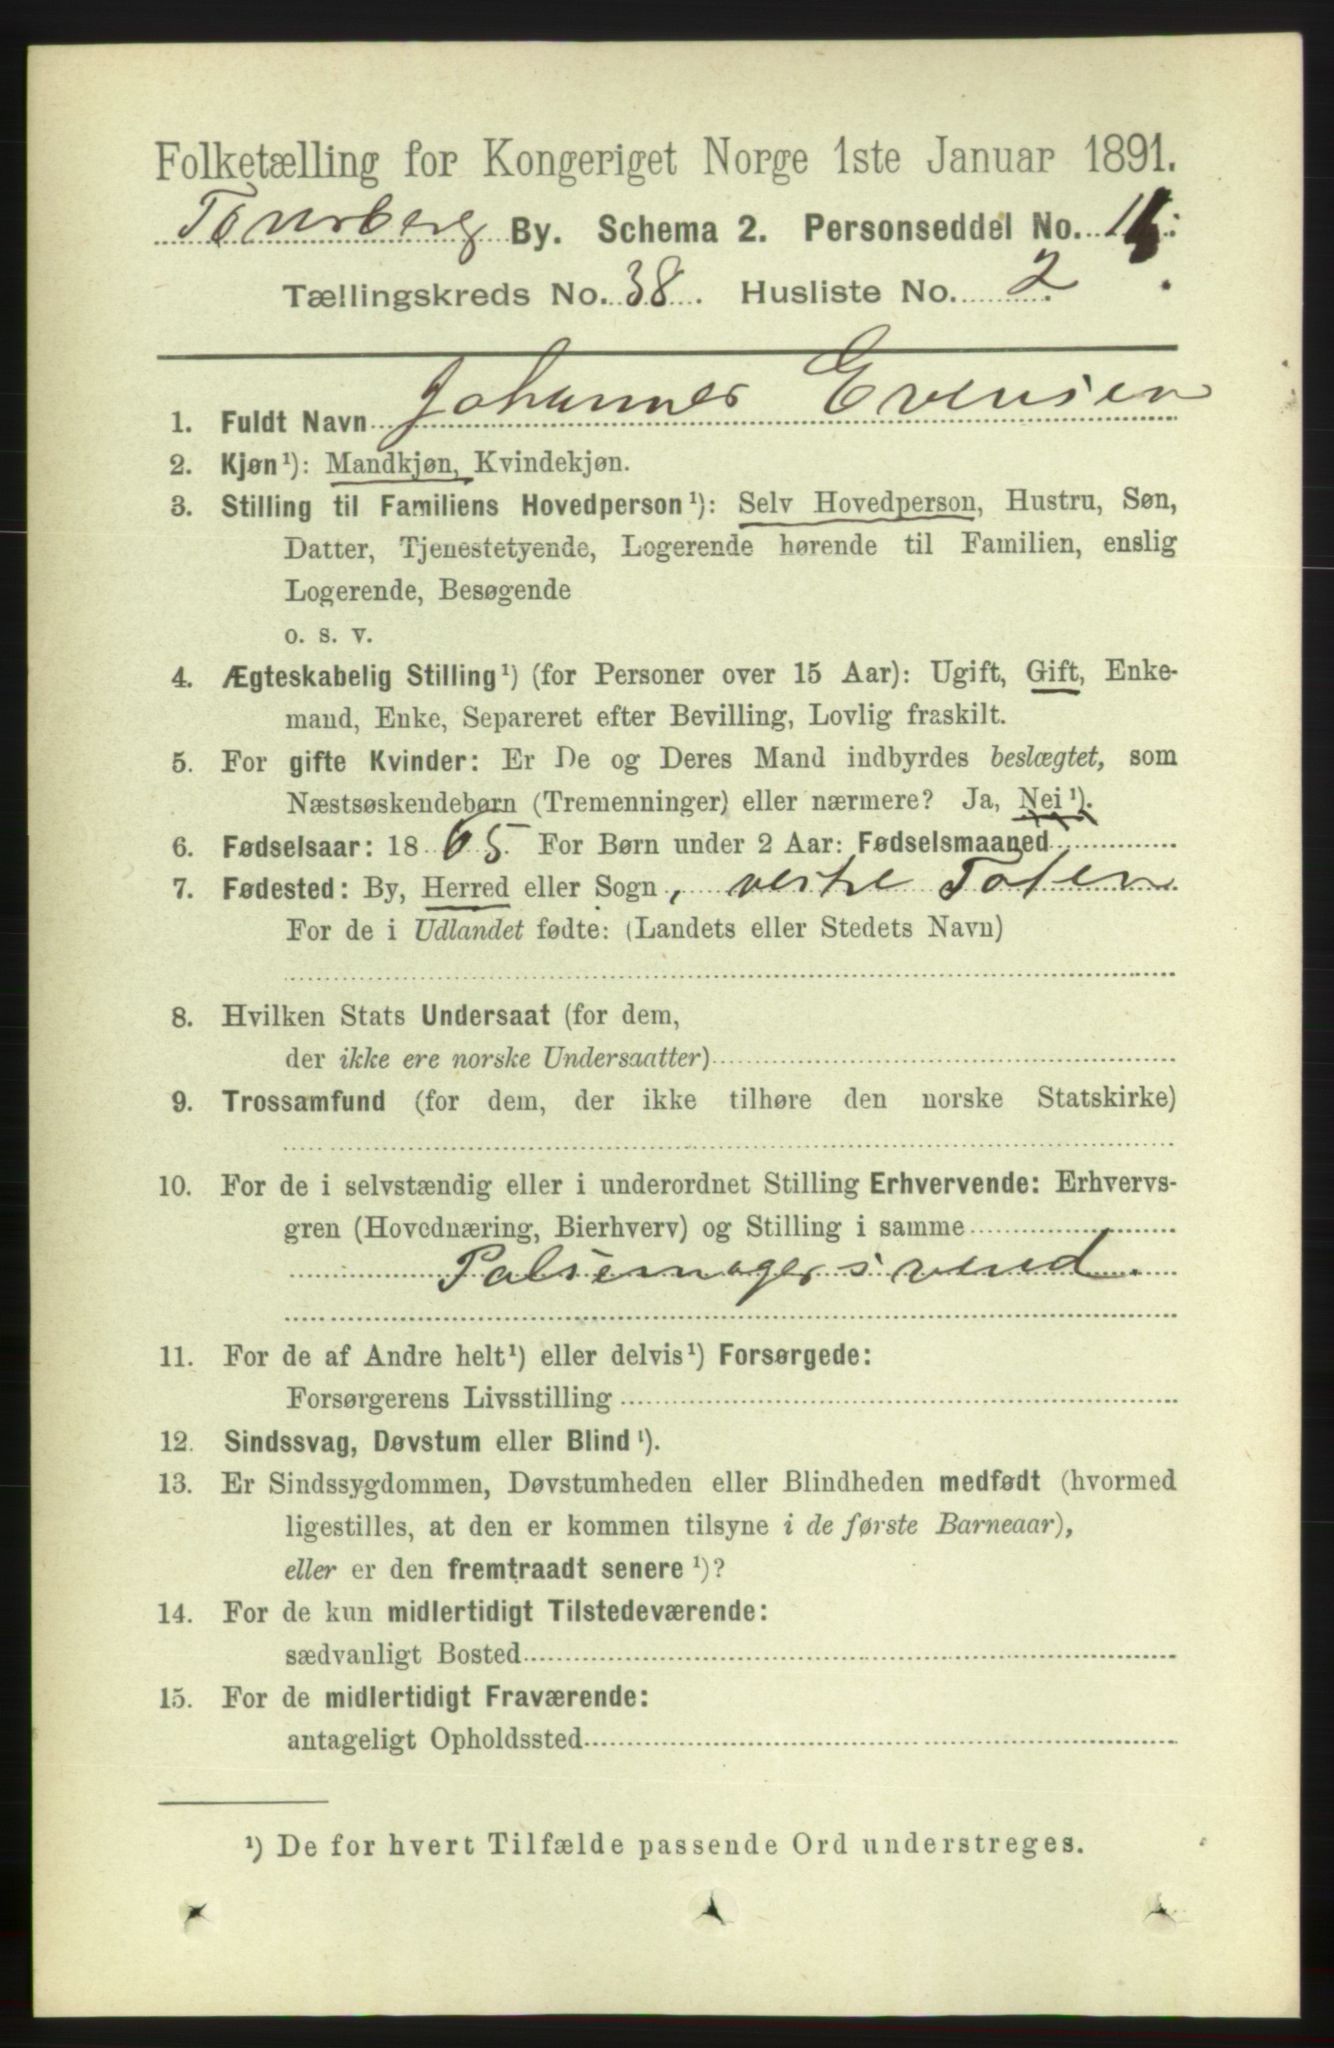 Folketælling for Kongeriget Norge 1ste Januar 1891.
Tønsberg By. Schema 2. Personseddel No.
Tællingskreds No. 38. Husliste No. 2.
1. Fuldt Navn Johannes Evensen
2. Kjøn¹): Mandkjøn, Kvindekjøn.
3. Stilling til Familiens Hovedperson¹): Selv Hovedperson, Hustru, Søn,
Datter, Tjenestetyende, Logerende hørende til Familien, enslig
Logerende, Besøgende
o. s. v.
4. Ægteskabelig Stilling¹) (for Personer over 15 Aar): Ugift, Gift, Enke-
mand, Enke, Separeret efter Bevilling, Lovlig fraskilt.
5. For gifte Kvinder: Er De og Deres Mand indbyrdes beslægtet, som
Næstsøskendebørn (Tremenninger) eller nærmere? Ja, Nei¹).
6. Fødselsaar: 1865. For Børn under 2 Aar: Fødselsmaaned
7. Fødested: By, Herred eller Sogn, vestre Toten
For de i Udlandet fødte: (Landets eller Stedets Navn)
8. Hvilken Stats Undersaat (for dem,
der ikke ere norske Undersaatter)
9. Trossamfund (for dem, der ikke tilhøre den norske Statskirke)
10. For de i selvstændig eller i underordnet Stilling Erhvervende: Erhvervs-
gren (Hovednæring, Bierhverv) og Stilling i samme
Pølsemagersvend.
11. For de af Andre helt¹) eller delvis¹) Forsørgede:
Forsørgerens Livsstilling
12. Sindssvag, Døvstum eller Blind¹).
13. Er Sindssygdommen, Døvstumheden eller Blindheden medfødt (hvormed
ligestilles, at den er kommen tilsyne i de første Barneaar),
eller er den fremtraadt senere¹)?
14. For de kun midlertidigt Tilstedeværende:
sædvanligt Bosted
15. For de midlertidigt Fraværende:
antageligt Opholdssted
¹) De for hvert Tilfælde passende Ord understreges.